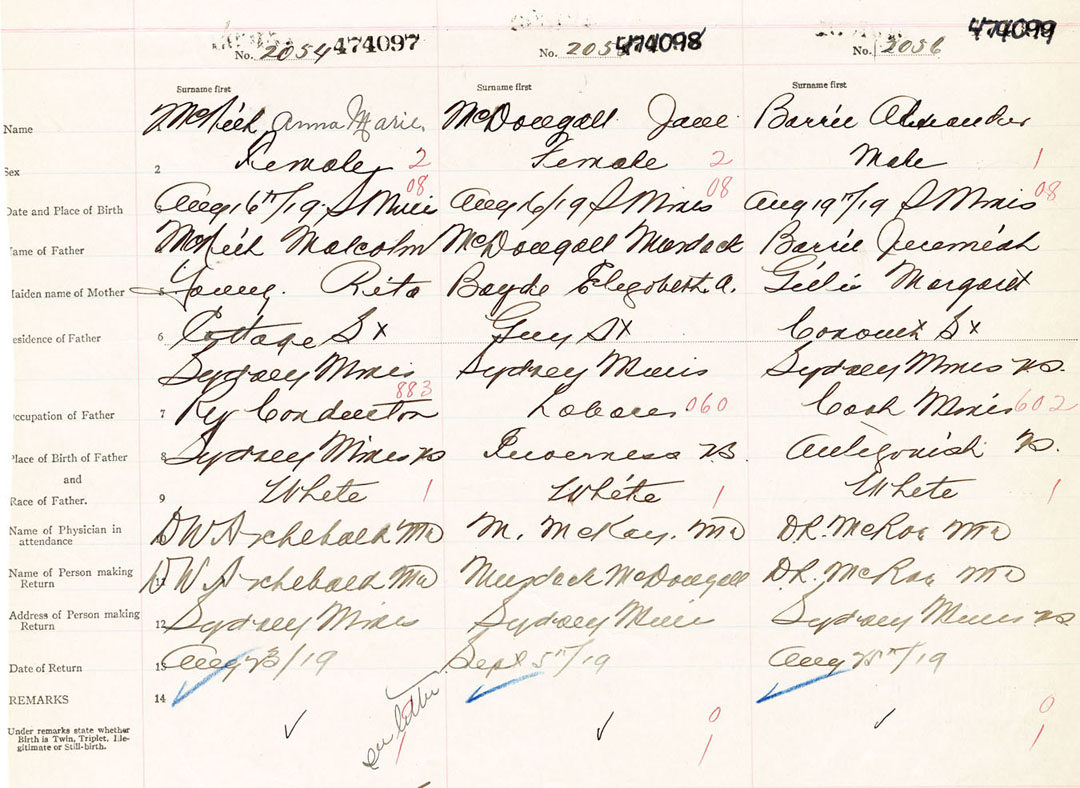 No. 2054 474097 No. 205 474098 No. 2056 474099
Surname first Surname first Surname first
Name Anna Marie McDougall Jane Barrie Alexander
Sex 2 Female 2 Female 2 Male 1
08 08 08
Date and Place of Birth Aug 16th/19 S Mines Aug 16/19 S Mines Aug 19th/19 S Mines
Name of Father Malcolm McDougall Murdock Barrie Jeremiah
Maiden name of Mother 5 Young. Rita Boyde Elizabeth A. Gillis Margaret
Residence of Father 6 Cottage St Guy St St
Sydney Mines Sydney Mines Sydney Mines NS.
883
Occupation of Father 7 Ry Conductor Laborer 060 Coal Miner 602
Place of Birth of Father 8 Sydney Mines NS Inverness NS. Antigonish NS.
and
Race of Father. 9 White 1 White 1 White 1
Name of Physician in
attendance D W Archebald MD M. McKay. MD D.R. McRae MD
Name of Person making
Return 11 D W Archebald MD Murdock McDougall D.R. McRae MD
Address of Person making
Return 12 Sydney Mines Sydney Mines Sydney Mines NS
Date of Return 13 Aug 23/19 Sept 5th/19 Aug 25th/19
REMARKS 14
Under remarks state whether
Birth is Twin, Triplet, Ille-
gitimate or Still-birth.
letter
0 0
1 1 1